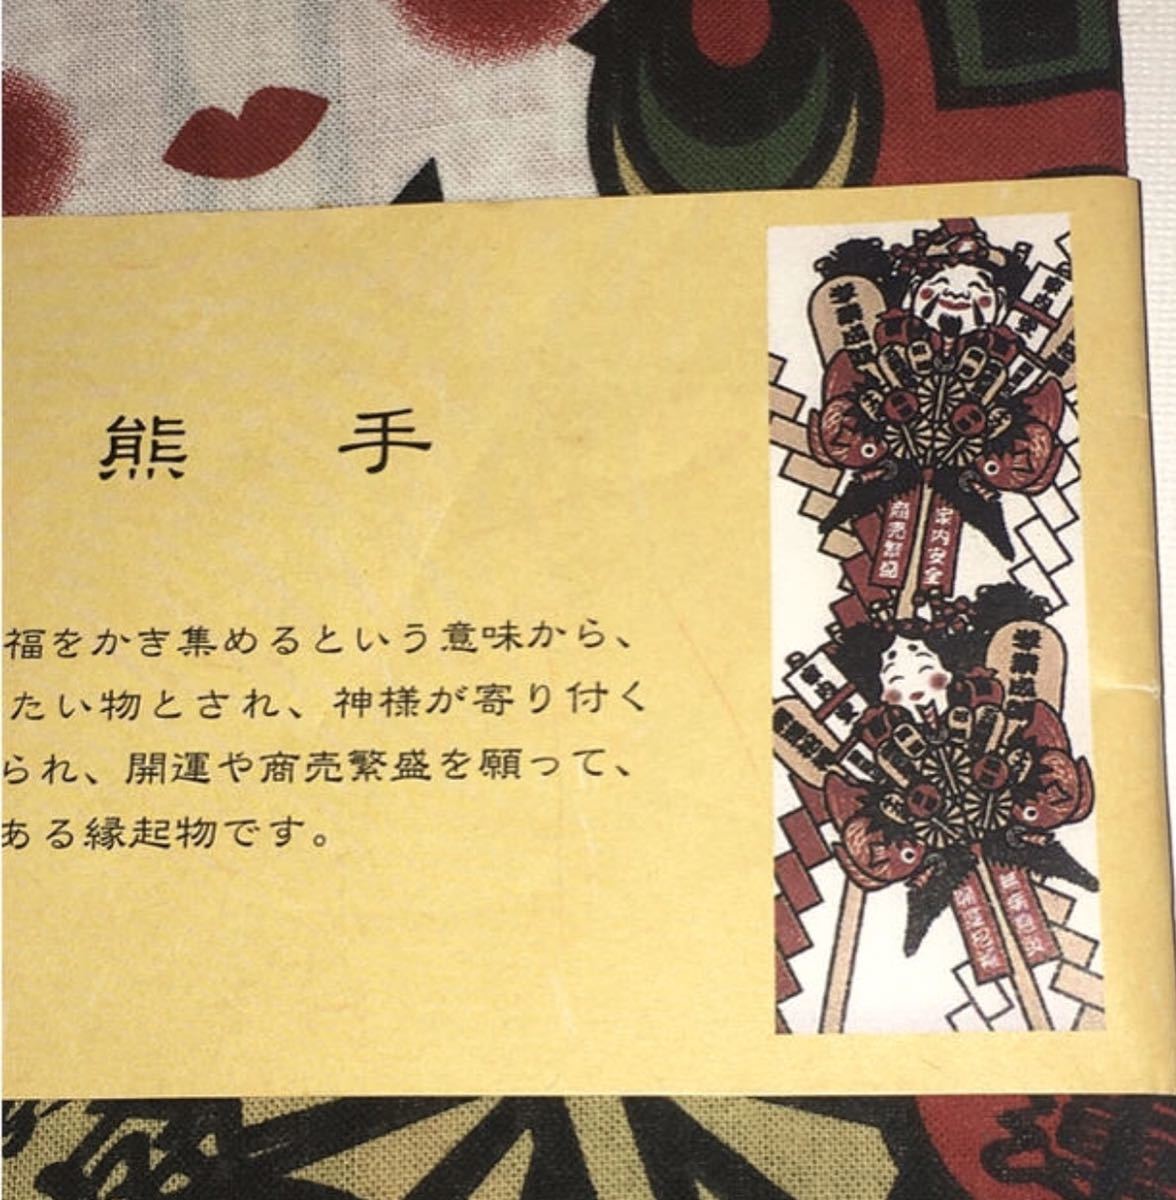 熊手
福をかき集めるという意味から、
たい物とされ、神様が寄り付く
られ、開運や商売繁盛を願って、
ある縁起物です。
学業成就
家内安全
商売繁盛
家内安全
学業成就